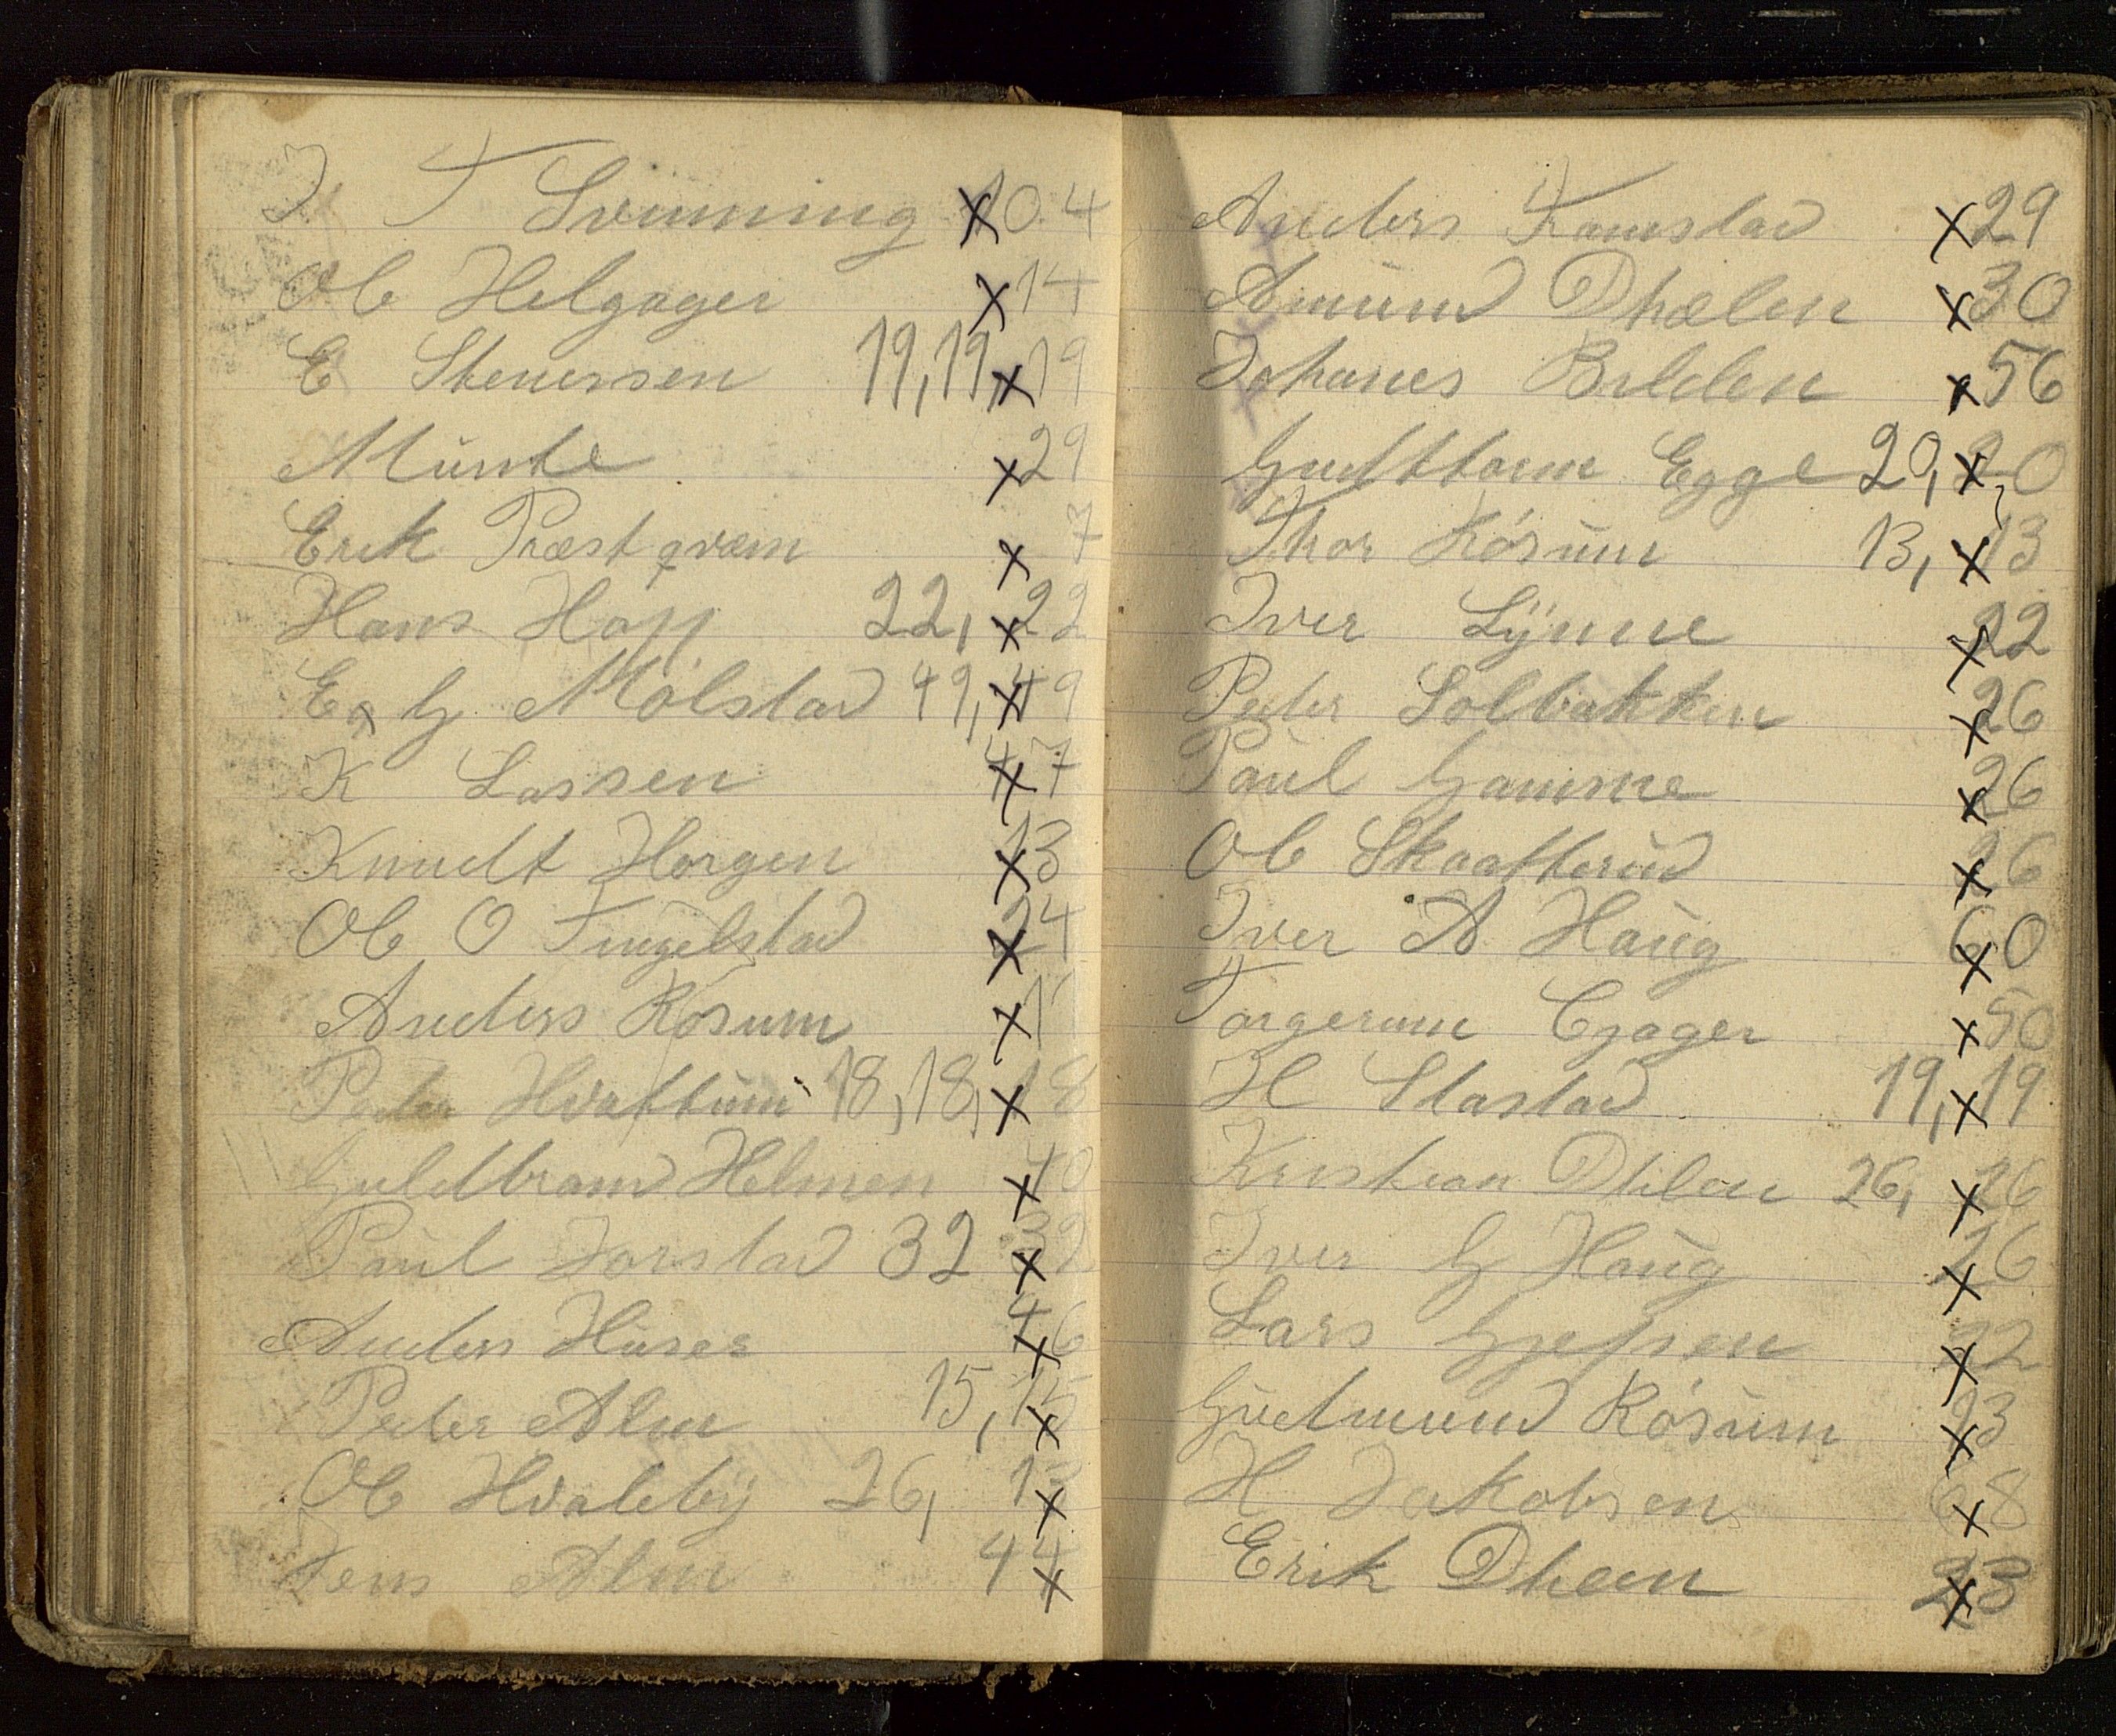 J T Svenning x 104
Ole Helgager x 14
E Stenersen 19, 19, x 19
Münte x 29
Erik Præstqvæm x 7
Hans Hopp 22, x 22
E G Mölstad 49, x 49
K Lassen x 47
Knudt Horgen x 13
Ole O Tingelstad x 24
Anders Rosum x 11
Peder Hvattum 18, 18, x 18
Guldbrand Helmen x 40
Paul Jorstad 32 x 32
Anders Huser x 46
Peder Alm 15, x 15
Ole Hvaleby 26, x 13
Jens Alm x 44
Anders Framstad x 29
Amund Dhælen x 30
Johanes Bilden x 56
Gudttorm Egge 20, x 20
Thor Rósum 13, x 13
Iver Lynne x 22
Peder Solbakken x 26
Paul Gamme x 26
Ole Skaatterud x 26
Iver A Haug x 60
Torgerum Egager x 50
H Stastad 19, x 19
Kristian Dhlen 26, x 26
Iver G Haug x 26
Lars Gjefsen x 22
Gudmund Rósum x 23
H Jakobsen x 68
Erik Dhæn x 23